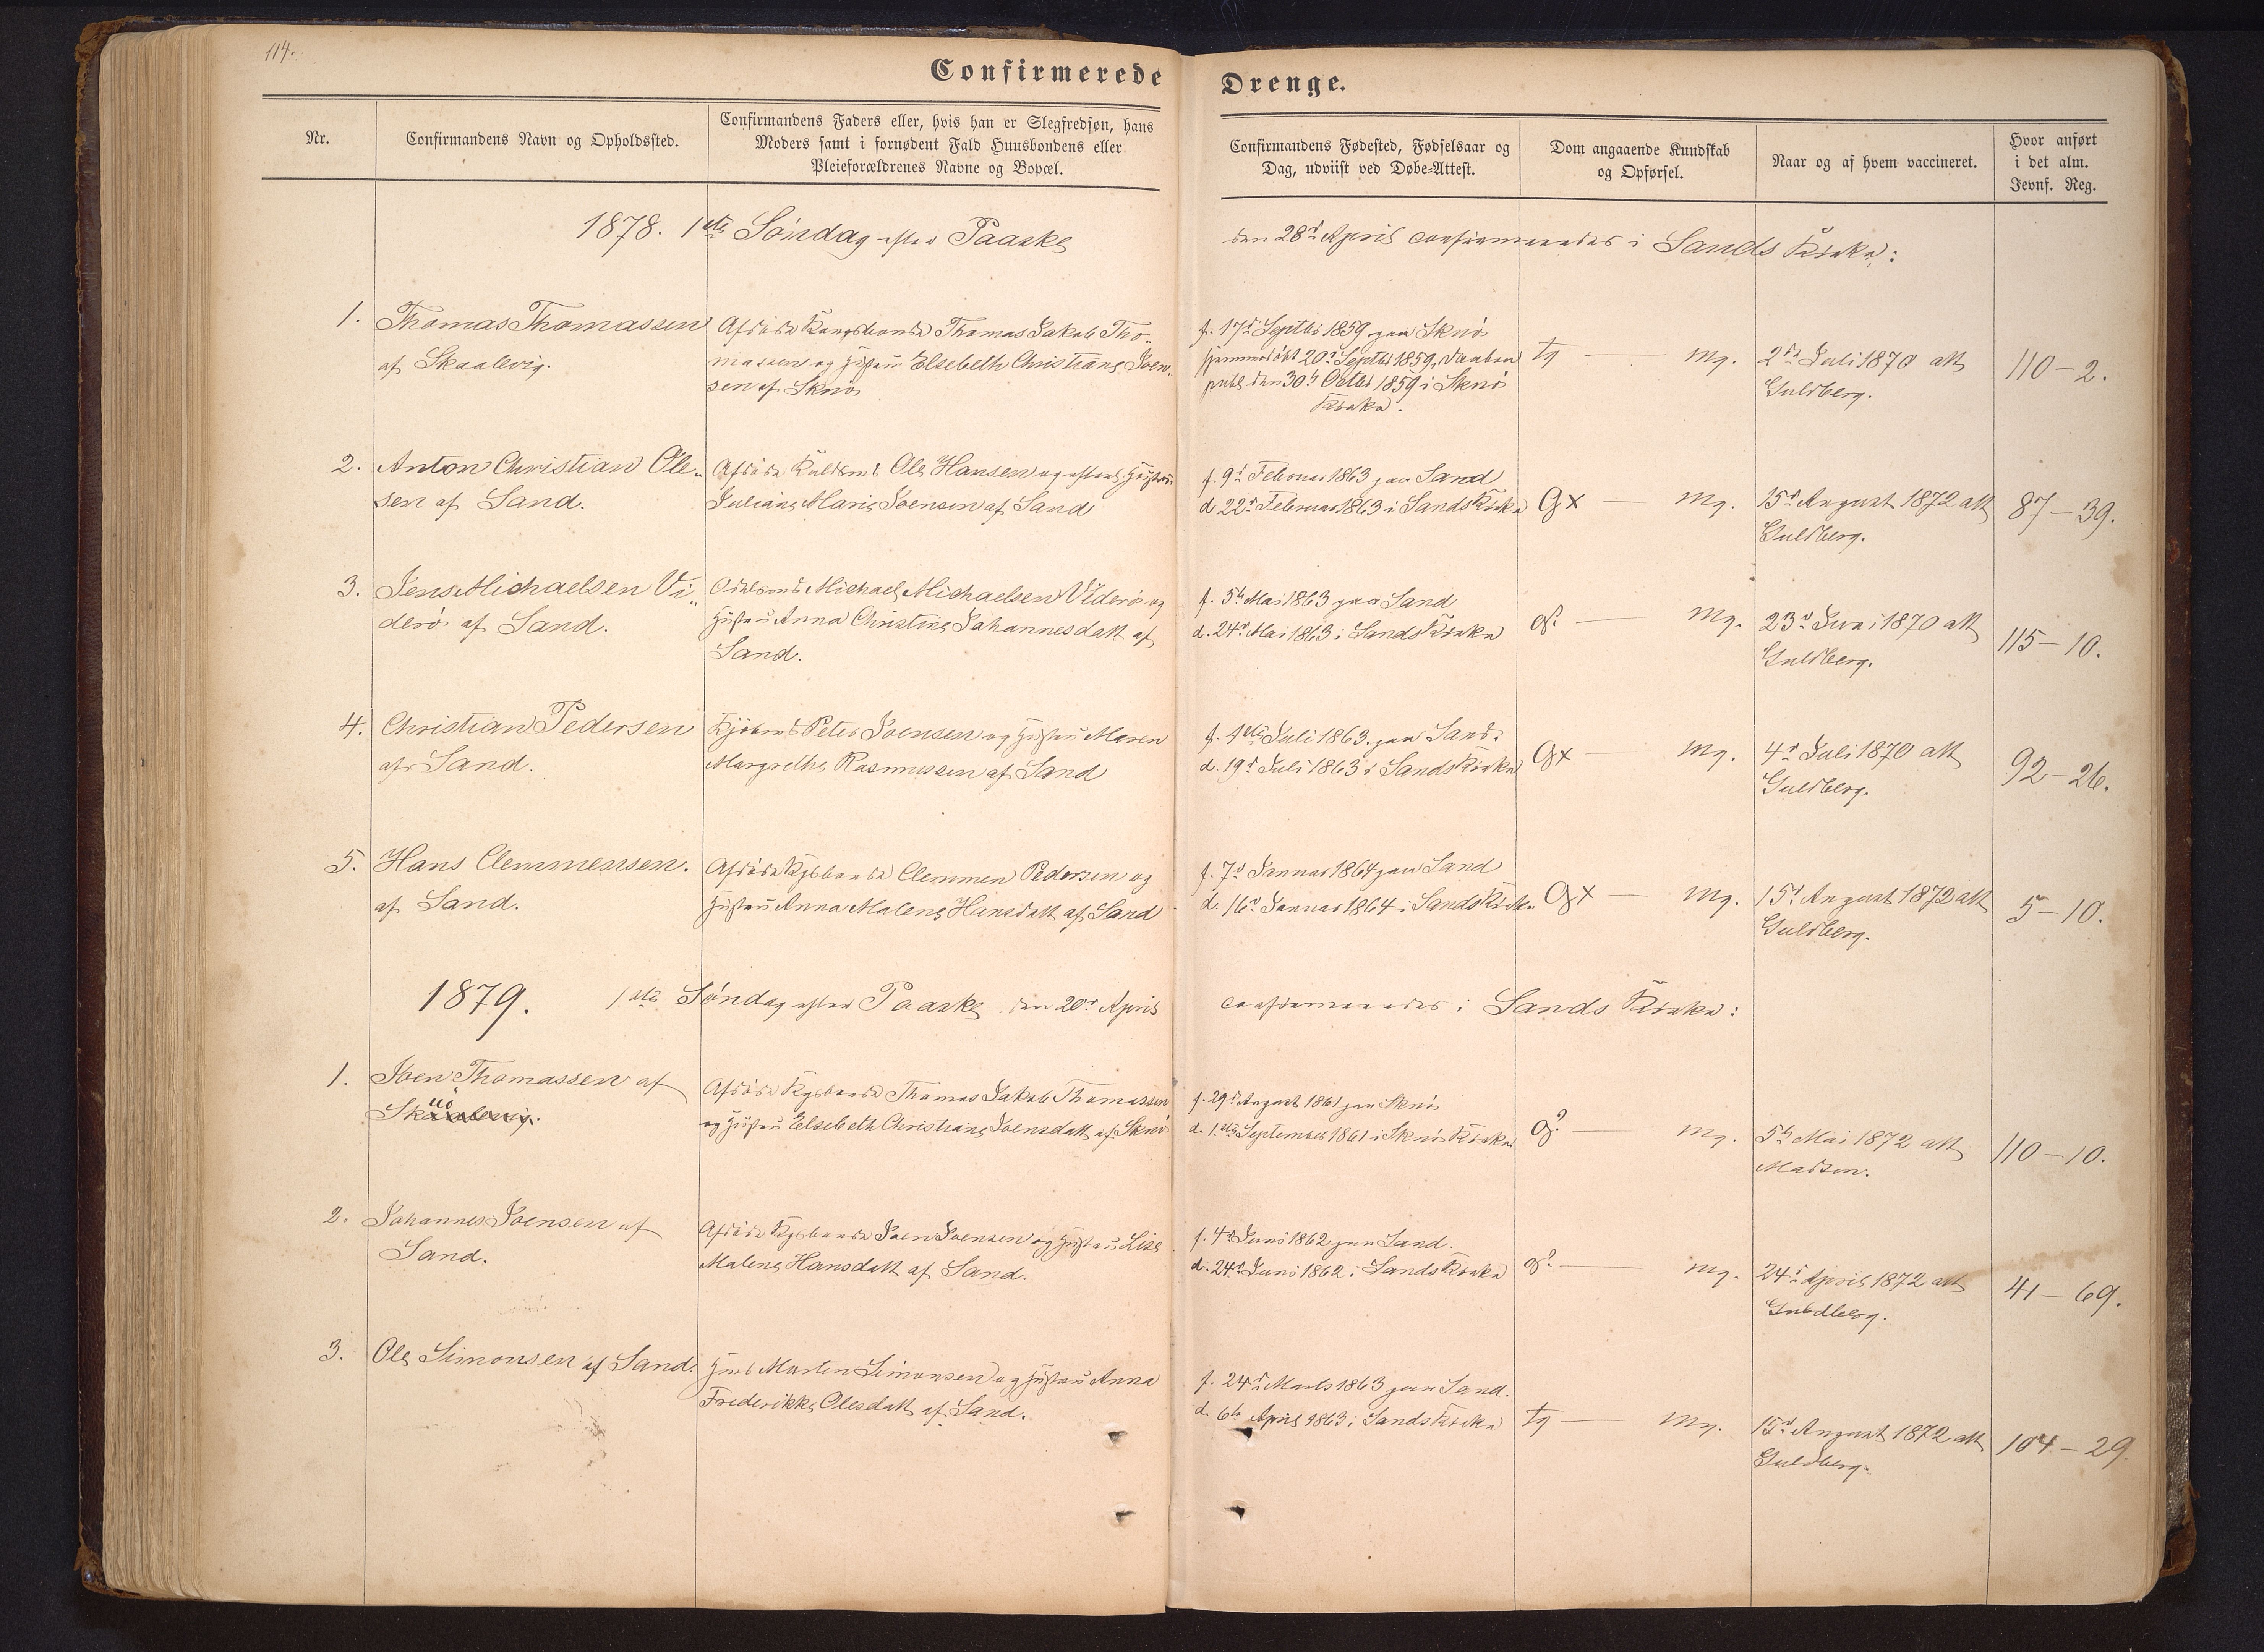 114.
Confirmerede Drenge.
Nr.
Confirmandens Navn og Opholdssted.
Confirmandens Faders eller, hvis han er Slegfredsøn, hans
Moders samt i fornødent Fald Huusbondens eller
Pleieforældrenes Navne og Bopæl.
Confirmandens Fødested, Fødselsaar og
Dag, udviist ved Døbe-Attest.
Dom angaaende Kundskab
og Opførsel.
Naar og af hvem vaccineret.
Hvor anført
i det alm.
Jevnf. Reg.
1878. 1ste Søndag efter Paaske den 28d April confirmeredes i Sands Kirke:
1.
Thomas Thomassen
af Skaalevig.
Afdøde Kongsbonde Thomas Jakob Tho-
massen og Hustru Elsebeth Christiane Joen-
sen af Skuø
f. 17d Septbr 1859 paa Skuø
hjemmedøbt 20d Septbr 1859, Daaben
publ. den 30te Octbr 1859 i Skuø
Kirke.
tg — mg.
2den Juli 1870 att
Guldberg.
110 - 2.
2.
Anton Christian Ole-
sen af Sand.
Afdøde Ole Hansen og Hustru
Juliane Marie Joensen af Sand
f. 9d Februar 1863 paa Sand
d. 22d Februar 1863 i Sands Kirke
Gx — mg.
15d August 1872 att
Guldberg.
87 - 39.
3.
Jens Michaelsen Vi-
derø af Sand.
Michael Michaelsen Viderø og
Hustru Anna Christine Johannesdatt af
Sand.
f. 5te Mai 1863 paa Sand
d. 24d Mai 1863 i Sands Kirke
g? — mg.
23d Juni 1870 att
Guldberg.
115 - 10.
4.
Christian Pedersen
af Sand.
Peter Joensen og Hustru Maren
Margrethe Rasmussen af Sand
f. 1ste Juli 1863 paa Sand.
d. 19d Juli 1863 i Sands Kirke
Gx — mg.
4d Juli 1870 att
Guldberg.
92 - 26.
5.
Hans Clemmensen.
af Sand.
Afdøde Kgsbonde Clemmen Pedersen og
Hustru Anna Malene Hansdatt af Sand
f. 7d Januar 1864 paa Sand
d. 16d Januar 1864 i Sands Kirke
Gx — mg.
15d August 1872 att
Guldberg.
5 - 10.
1879. 1ste Søndag efter Paaske den 20d April confirmeredes i Sands Kirke:
1.
Joen Thomassen af
Skuø
Afdøde Kgsbonde Thomas Jakob Thomassen
og Hustru Elsebeth Christiane Joensdatt af Skuø
f. 29d August 1861 paa Skuø
d. 1ste September 1861 i Skuø Kirke
g? — mg.
5te Mai 1872 att
Madsen.
110 - 10.
2.
Johannes Joensen af
Sand.
Afdøde Kgsbonde Joen Joensen og Hustru Lise
Malene Hansdatt af Sand.
f. 4d Juni 1862 paa Sand.
d. 24d Juni 1862 i Sands Kirke
g? — mg.
24d April 1872 att
Guldberg.
41 - 69.
3.
Ole Simonsen af Sand.
Morten Simonsen og Hustru Anna
Frederikke Olesdatt af Sand.
f. 24d Marts 1863 paa Sand.
d. 6te April 1863 i Sands Kirke
tg — mg.
15d August 1872 att
Guldberg.
104 - 29.